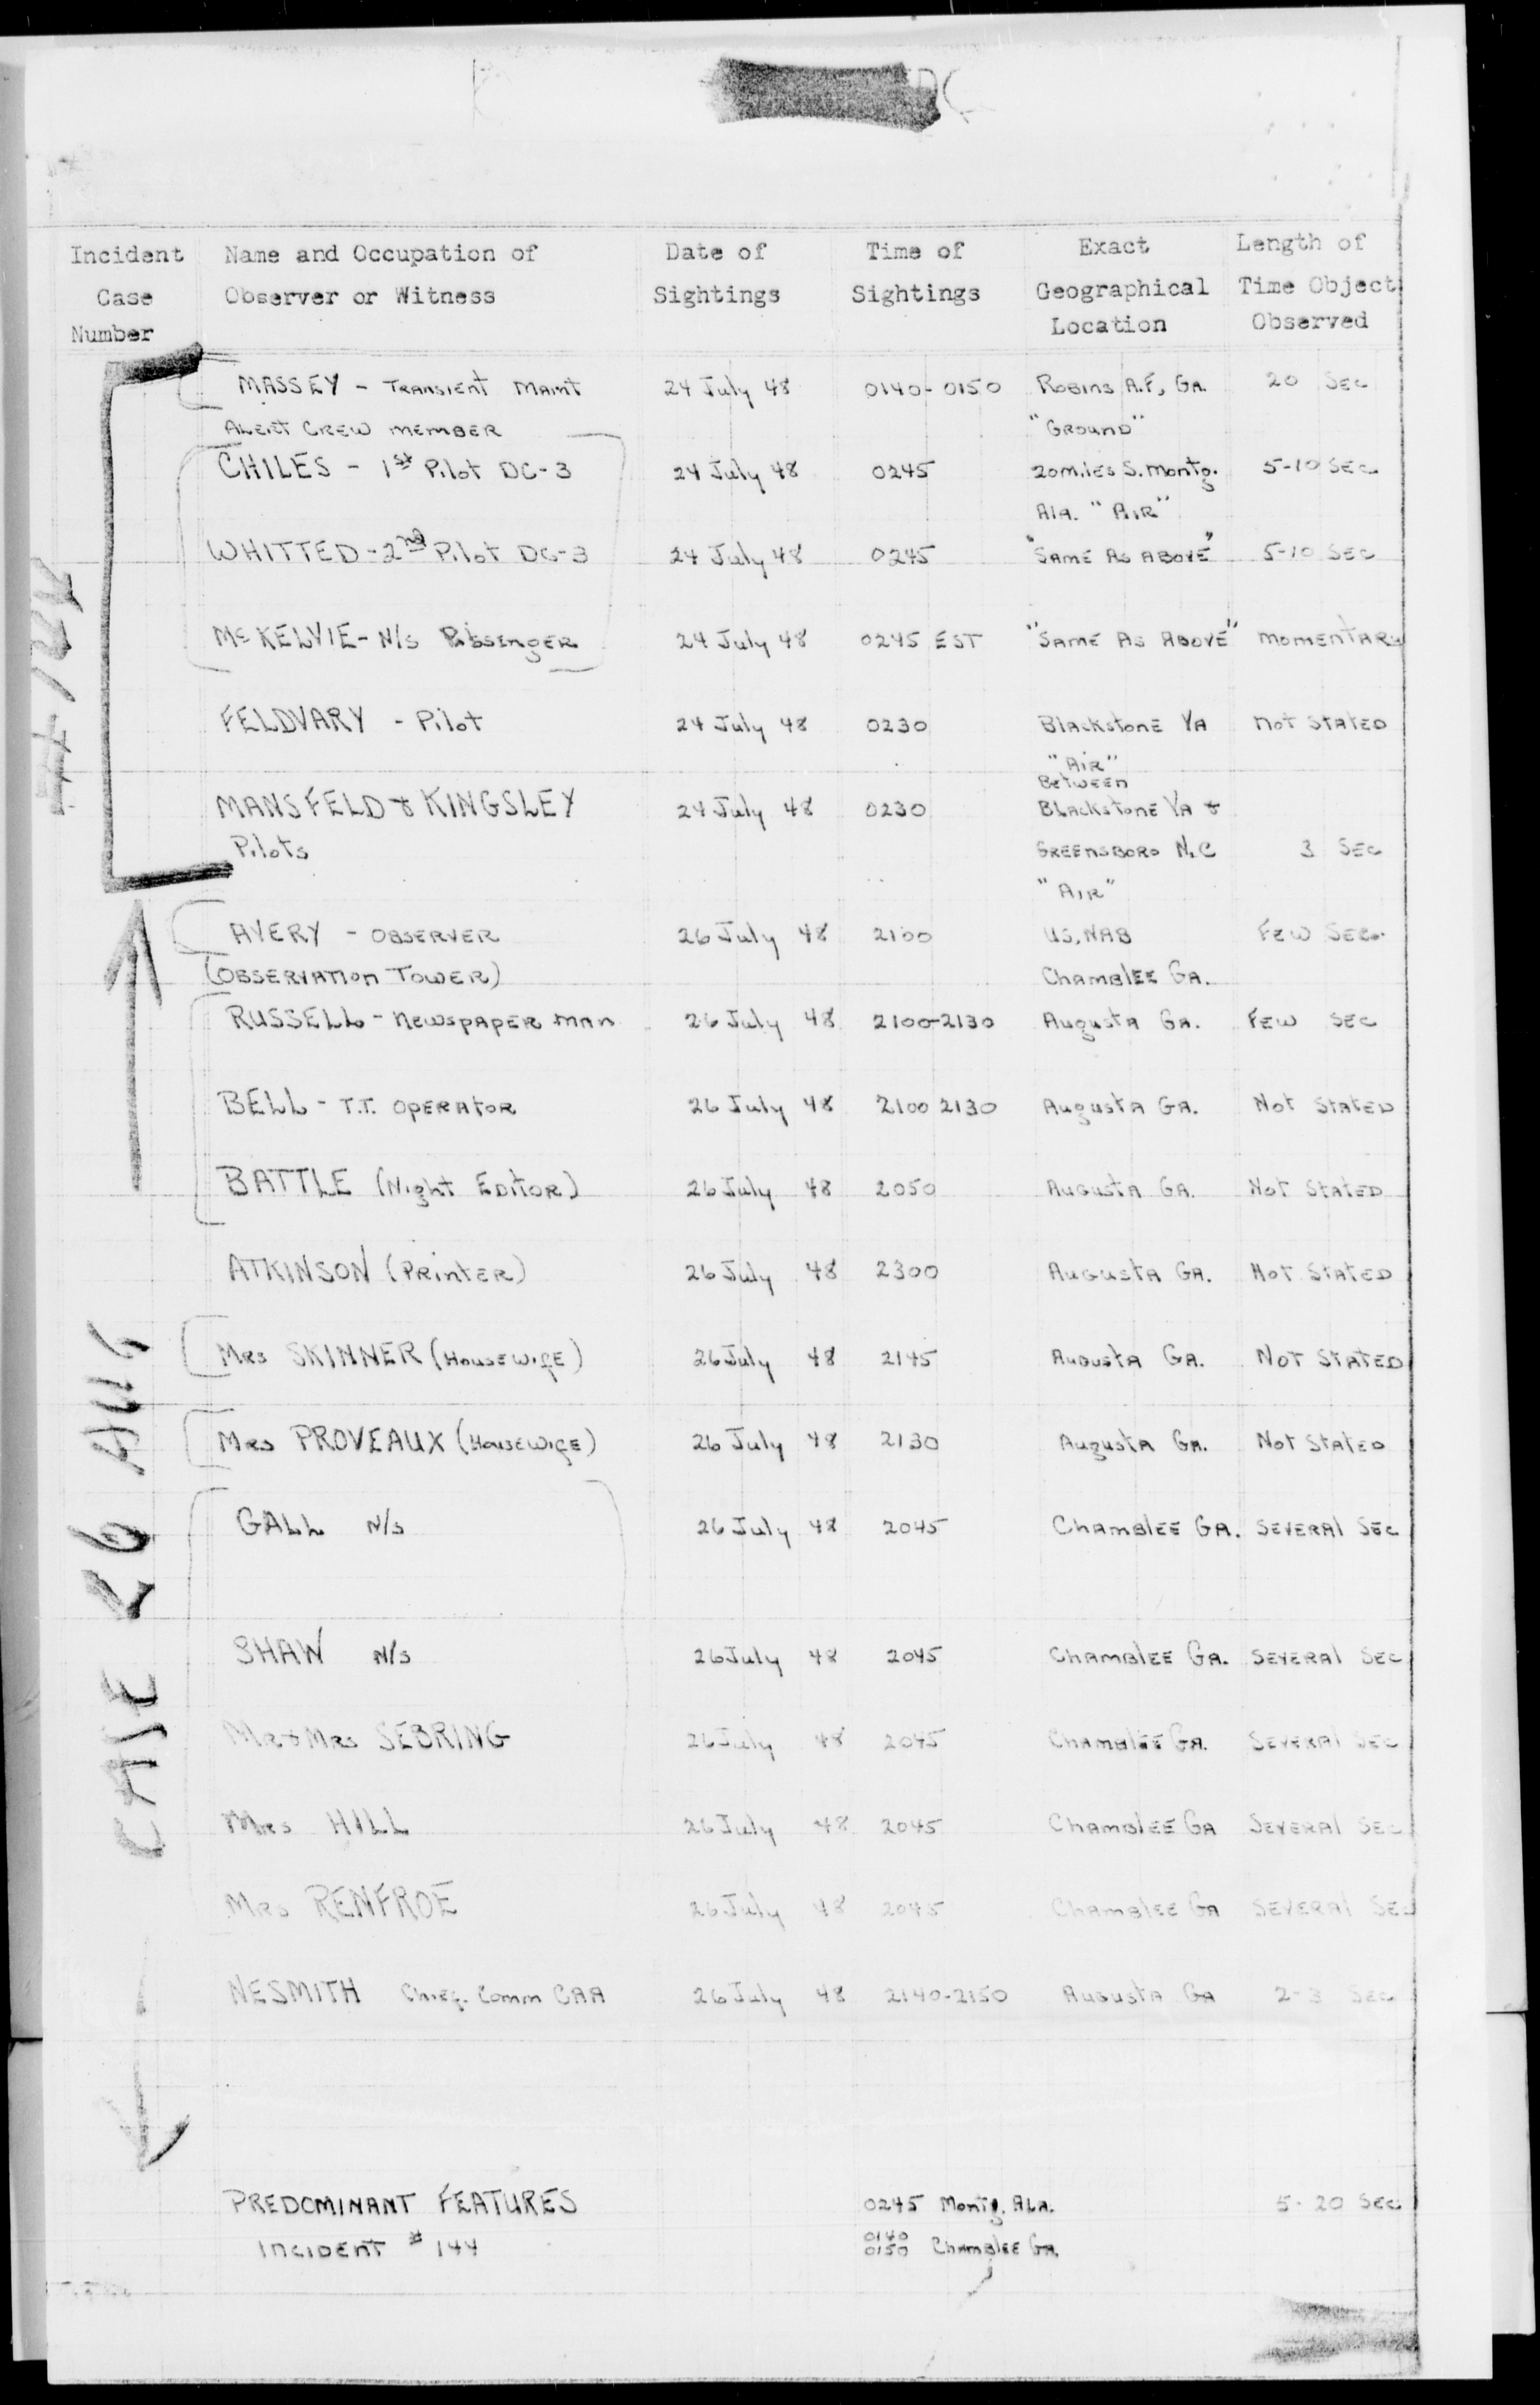 Incident Name and Occupation of Date of Time of Exact Length of
Case Observer or Witness Sightings Sightings Geographical Time Object
Number Location Observed
MASSEY - TRANSIENT MAINT 24 July 48 0140-0150 ROBINS A.F, GA. 20 SEC
ALERT CREW MEMBER "GROUND"
CHILES - 1st Pilot DC-3 24 July 48 0245 20 miles S. Montg. 5-10 SEC
Ala. "AIR"
WHITTED - 2nd Pilot DC-3 24 July 48 0245 "SAME AS ABOVE" 5-10 SEC
McKELVIE - N/S PASSENGER 24 July 48 0245 EST "SAME AS ABOVE" MOMENTARY
FELDVARY - Pilot 24 July 48 0230 Blackstone VA NOT STATED
"Air"
Between
MANSFELD & KINGSLEY 24 July 48 0230 BLackstone VA &
Pilots GREENSBORO N.C 3 SEC
"AIR"
AVERY - OBSERVER 26 July 48 2100 US, NAB FEW SEC.
(OBSERVATION TOWER) CHAMBLEE GA.
RUSSELL - NEWSPAPER MAN 26 July 48 2100-2130 Augusta GA. FEW SEC
BELL - T.T. OPERATOR 26 July 48 2100 2130 Augusta GA. NOT STATED
BATTLE (Night EDITOR) 26 July 48 2050 AUGUSTA GA. NOT STATED
ATKINSON (PRINTER) 26 July 48 2300 AUGUSTA GA. NOT STATED
Mrs SKINNER (HOUSEWIFE) 26 July 48 2145 AUGUSTA GA. NOT STATED
Mrs PROVEAUX (HOUSEWIFE) 26 July 48 2130 Augusta GA. NOT STATED
GALL N/S 26 July 48 2045 CHAMBLEE GA. SEVERAL SEC
SHAW N/S 26 July 48 2045 CHAMBLEE GA. SEVERAL SEC
Mr & Mrs SEBRING 26 July 48 2045 CHAMBLEE GA. SEVERAL SEC
Mrs HILL 26 July 48 2045 CHAMBLEE GA SEVERAL SEC
Mrs RENFROE 26 July 48 2045 CHAMBLEE GA SEVERAL SEC
NESMITH Chief. Comm CAA 26 July 48 2140-2150 AUGUSTA GA 2-3 SEC
CASE 26 AUG
PREDOMINANT FEATURES 0245 Montg. ALA. 5-20 SEC
INCIDENT # 144 0140 0150 CHAMBLEE GA.